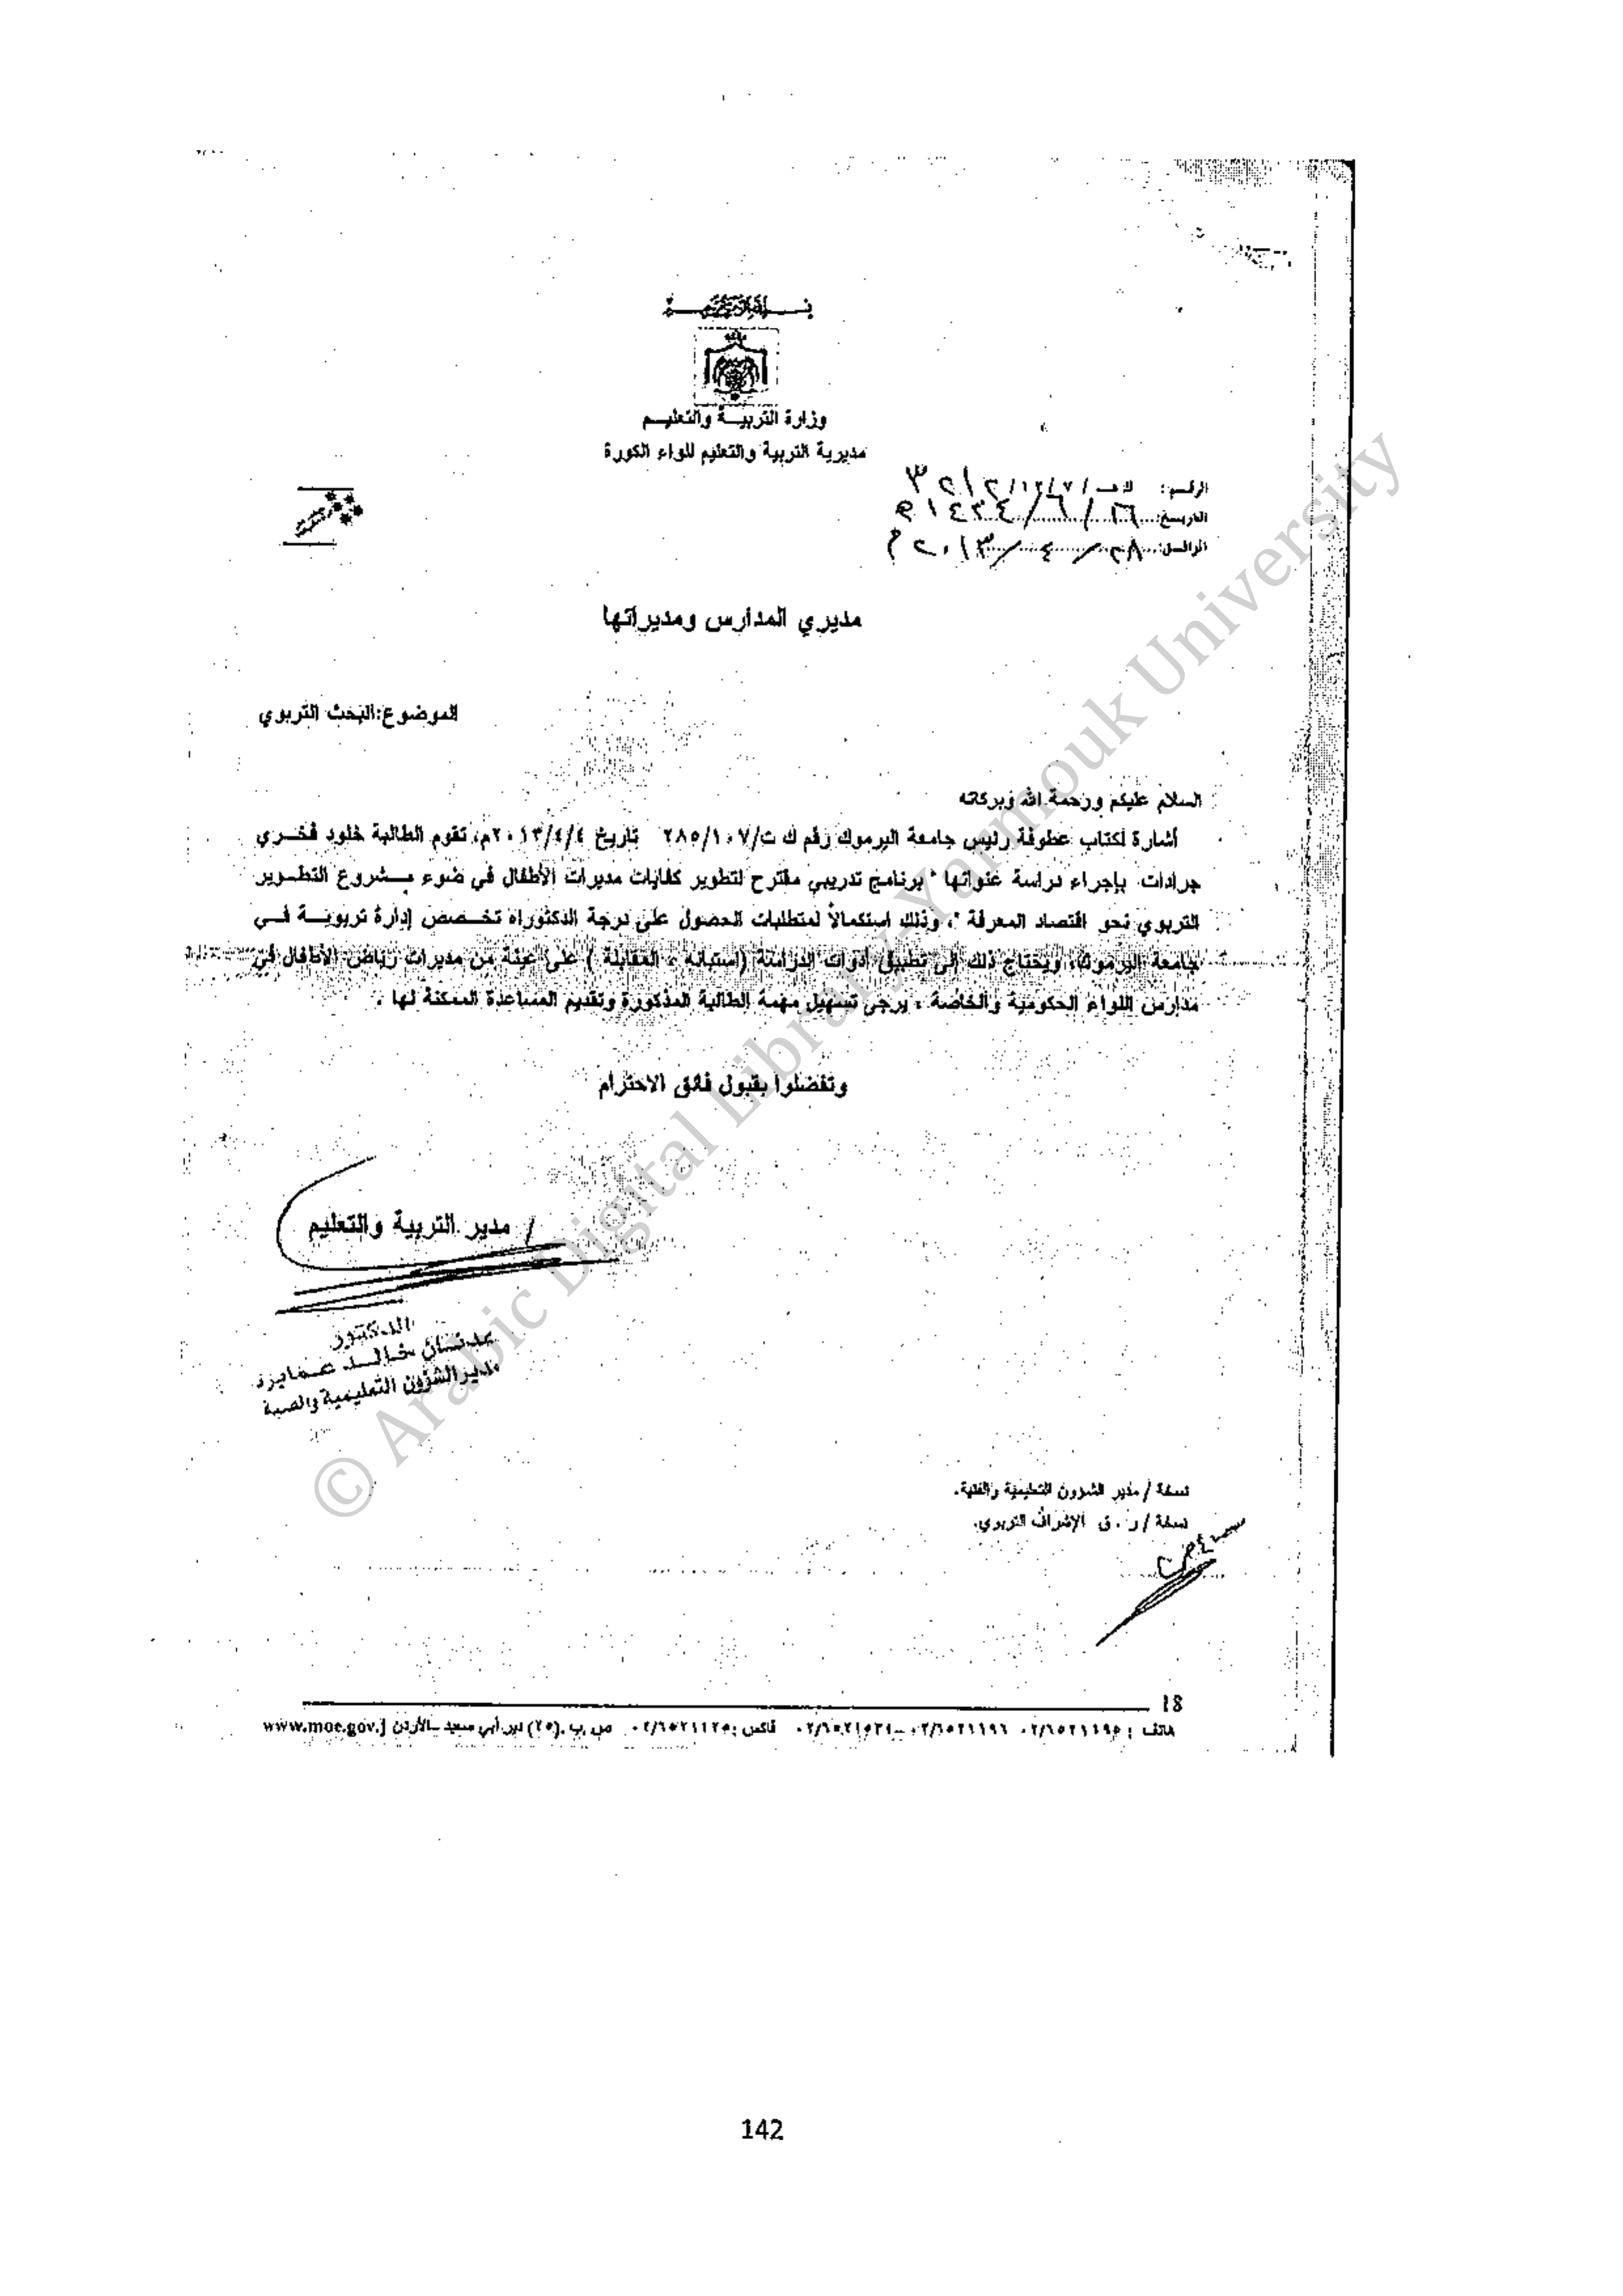 وزارة التربيـــة والتعليـــم
مديرية التربية والتعليم للواء الكورة
الرقم: ٣٢١٢/١٢/٧/
التاريخ: ١٦/٦/١٤٣٤ه
الموافق: ٢٨/٤/٢٠١٣م
مديري المدارس ومديراتها
الموضوع: البحث التربوي
السلام عليكم ورحمة الله وبركاته
أشارة لكتاب عطوفة رئيس جامعة اليرموك رقم ك ت/٢٨٥/١٠٧ تاريخ ٢٠١٣/٤/٤م، تقوم الطالبة خلود فخـــري
جرادات بإجراء دراسة عنوانها " برنامج تدريبي مقترح لتطوير كفايات مديرات الأطفال في ضوء مـــشروع التطـــوير
التربوي نحو اقتصاد المعرفة "، وذلك استكمالاً لمتطلبات الحصول على درجة الدكتوراه تخـــصص إدارة تربويـــة فـــي
جامعة اليرموك، ويحتاج ذلك إلى تطبيق أدوات الدراسة (استبانه ، المقابلة ) على عينة من مديرات رياض الأطفال في
مدارس اللواء الحكومية والخاصة ، يرجى تسهيل مهمة الطالبة المذكورة وتقديم المساعدة الممكنة لها .
وتفضلوا بقبول فائق الاحترام
/ مدير التربية والتعليم
الدكتور
عدنـــان خالـــد عمايرة
مدير الشؤون التعليمية والفنية
نسخة / مدير الشؤون التعليمية والفنية.
نسخة / ر . ق الإشراف التربوي.
18
هاتف : ٠٢/٦٥٢١١٩٥ ٠٢/٦٥٢١١٩٦ – ٠٢/٦٥٢١٥٢١ فاكس : ٠٢/٦٥٢١١٢٥ ص.ب. (٢٥) دير أبي سعيد – الأردن www.moe.gov.j
© Arabic Digital Library-Yarmouk University
142